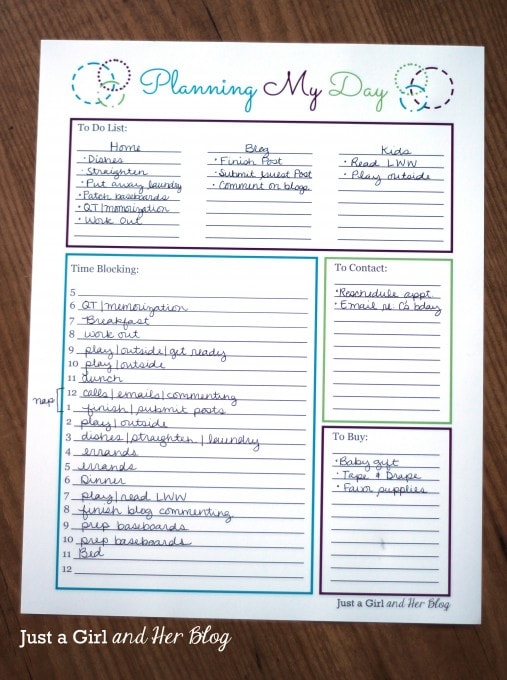 Planning My Day
To Do List:
Home
• Dishes
• Straighten
• Put away laundry
• Patch baseboards
• QT/memorization
• Work Out
Blog
• Finish Post
• Submit Guest Post
• Comment on blogs
Kids
• Read LWW
• Play outside
Time Blocking:
5
6 QT/memorization
7 Breakfast
8 work out
9 play/outside/get ready
10 play/outside
11 lunch
nap
12 calls/emails/commenting
1 finish/submit posts
2 play/outside
3 dishes/straighten/laundry
4 errands
5 errands
6 Dinner
7 play/read LWW
8 finish blog commenting
9 prep baseboards
10 prep baseboards
11 Bed
12
To Contact:
• Reschedule appt.
• Email re: C's bday
To Buy:
• Baby gift
• Tape & Drape
• Favor supplies
Just a Girl and Her Blog
Just a Girl and Her Blog